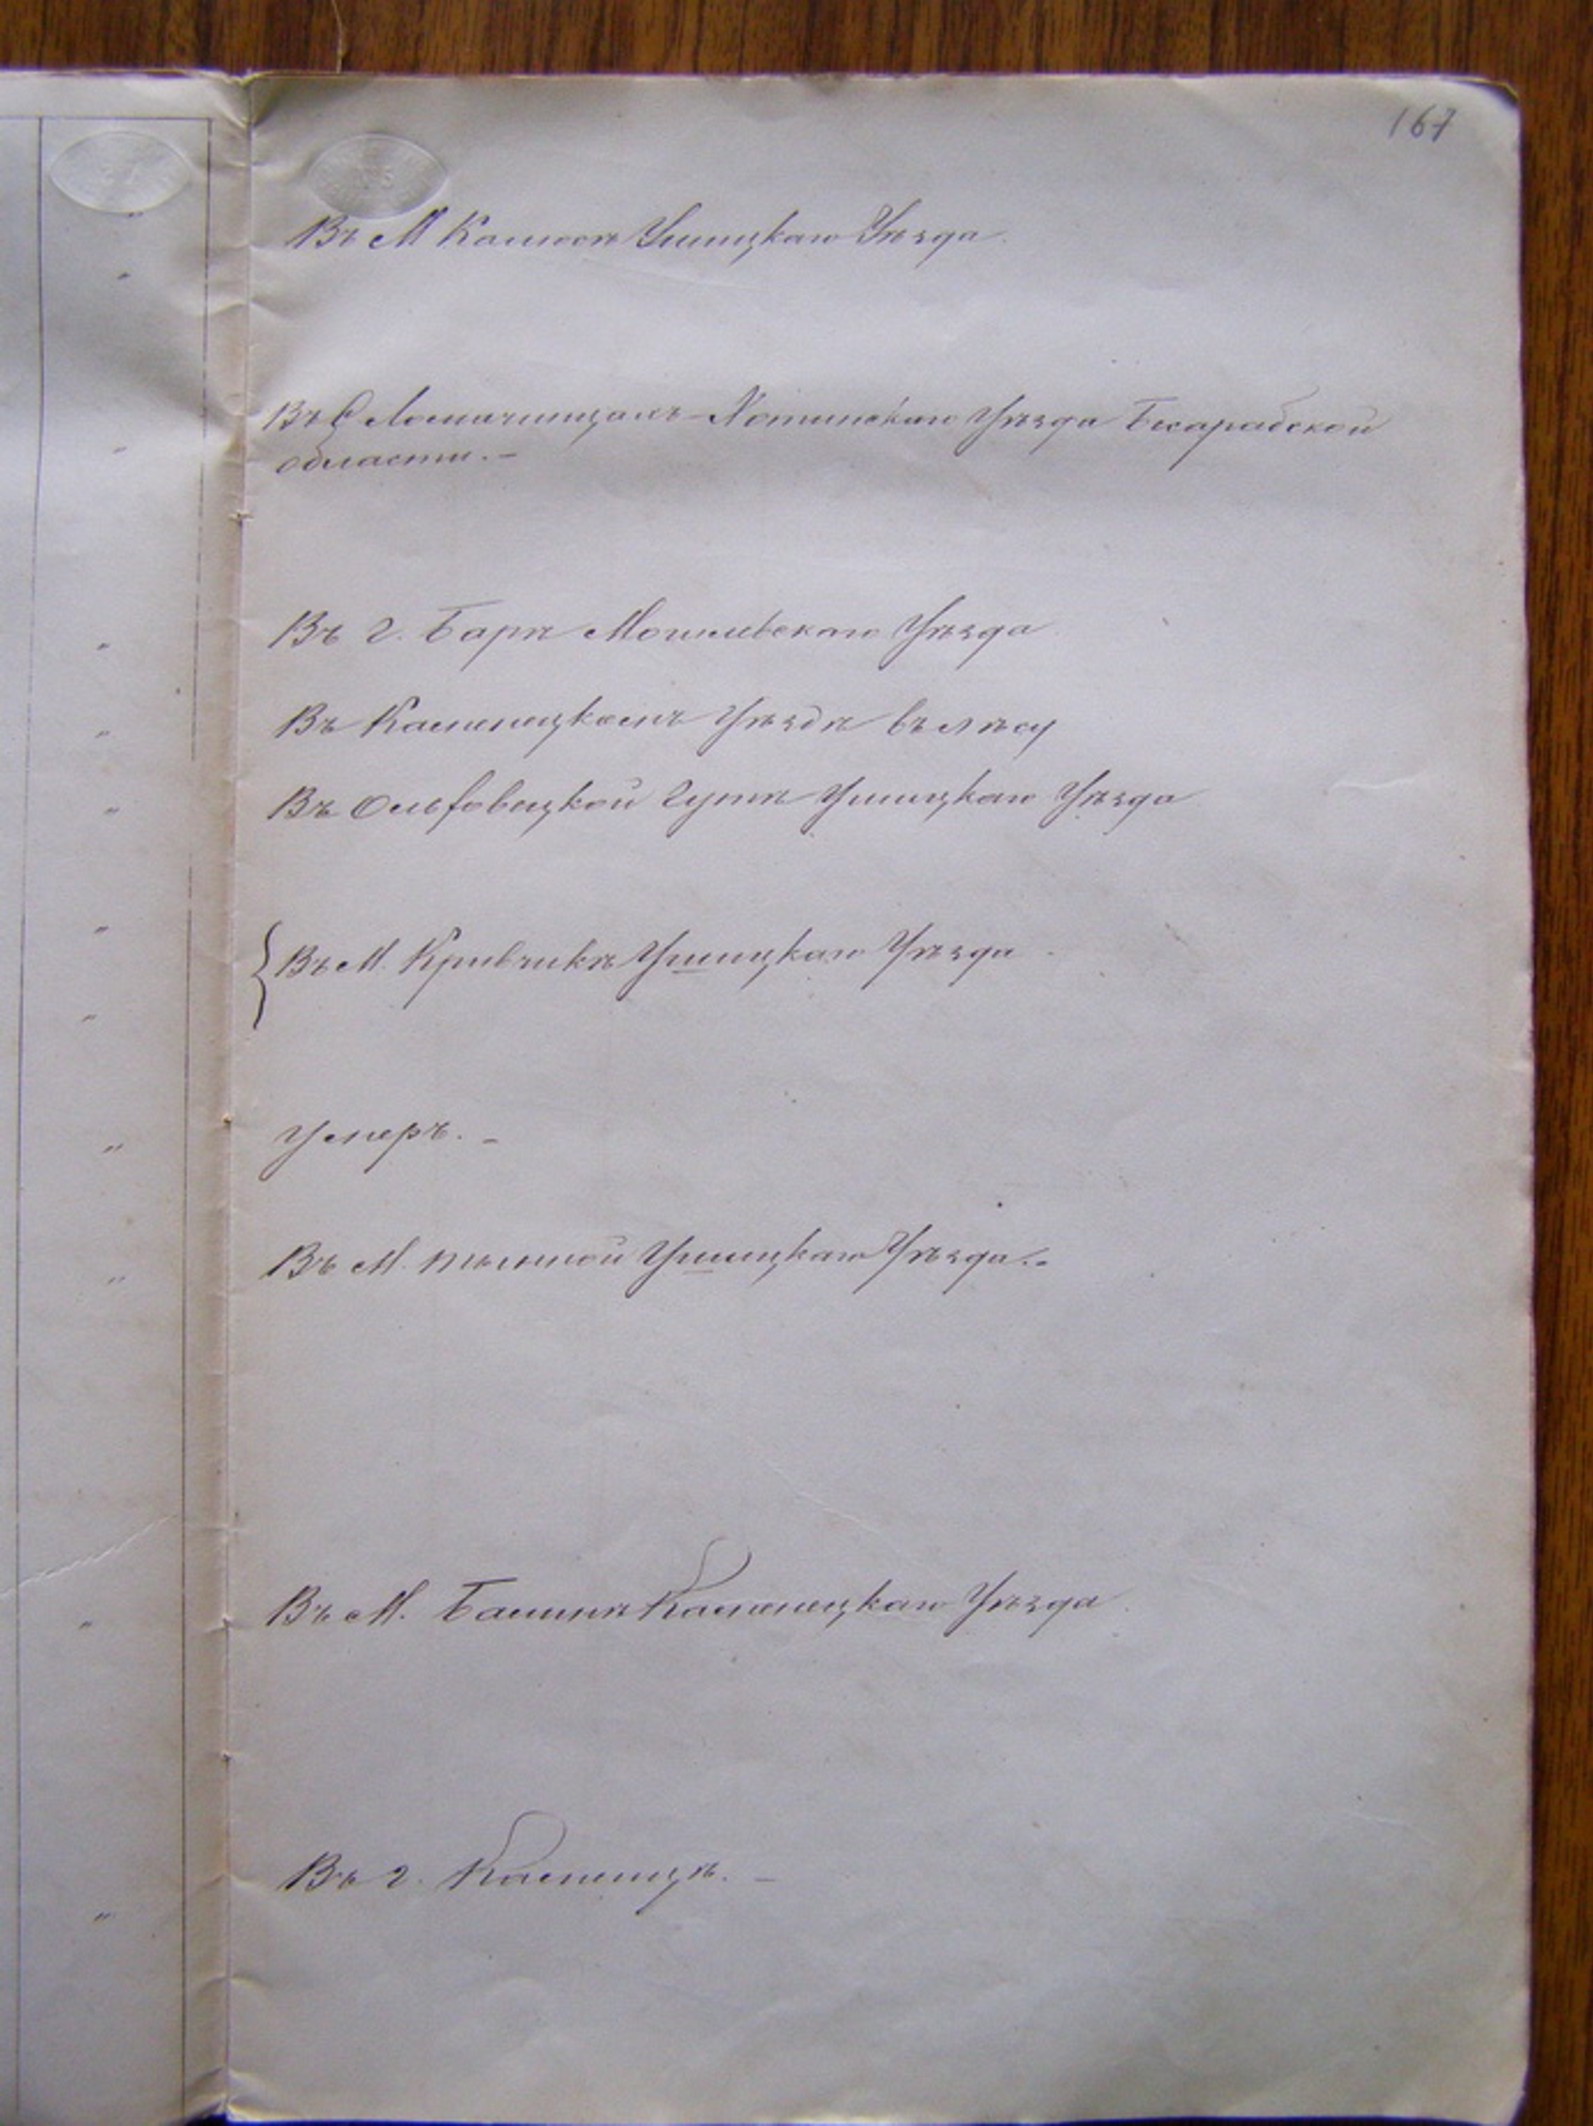 167
Въ М Калюсѣ Ушицкаго Уѣзда.
Въ С Ломачинцахъ Хотинскаго Уѣзда Бесарабской
области. -
Въ г. Барѣ Могилевскаго Уѣзда
Въ Каменецкомъ Уѣздѣ въ лѣсу
Въ Гутѣ Ушицкаго Уѣзда
Въ М. Кривчикѣ Ушицкаго Уѣзда.
Умеръ. -
Въ М. Тынной Ушицкаго Уѣзда. -
Въ М. Балинѣ Каменецкаго Уѣзда.
Въ г. Каменцѣ. -